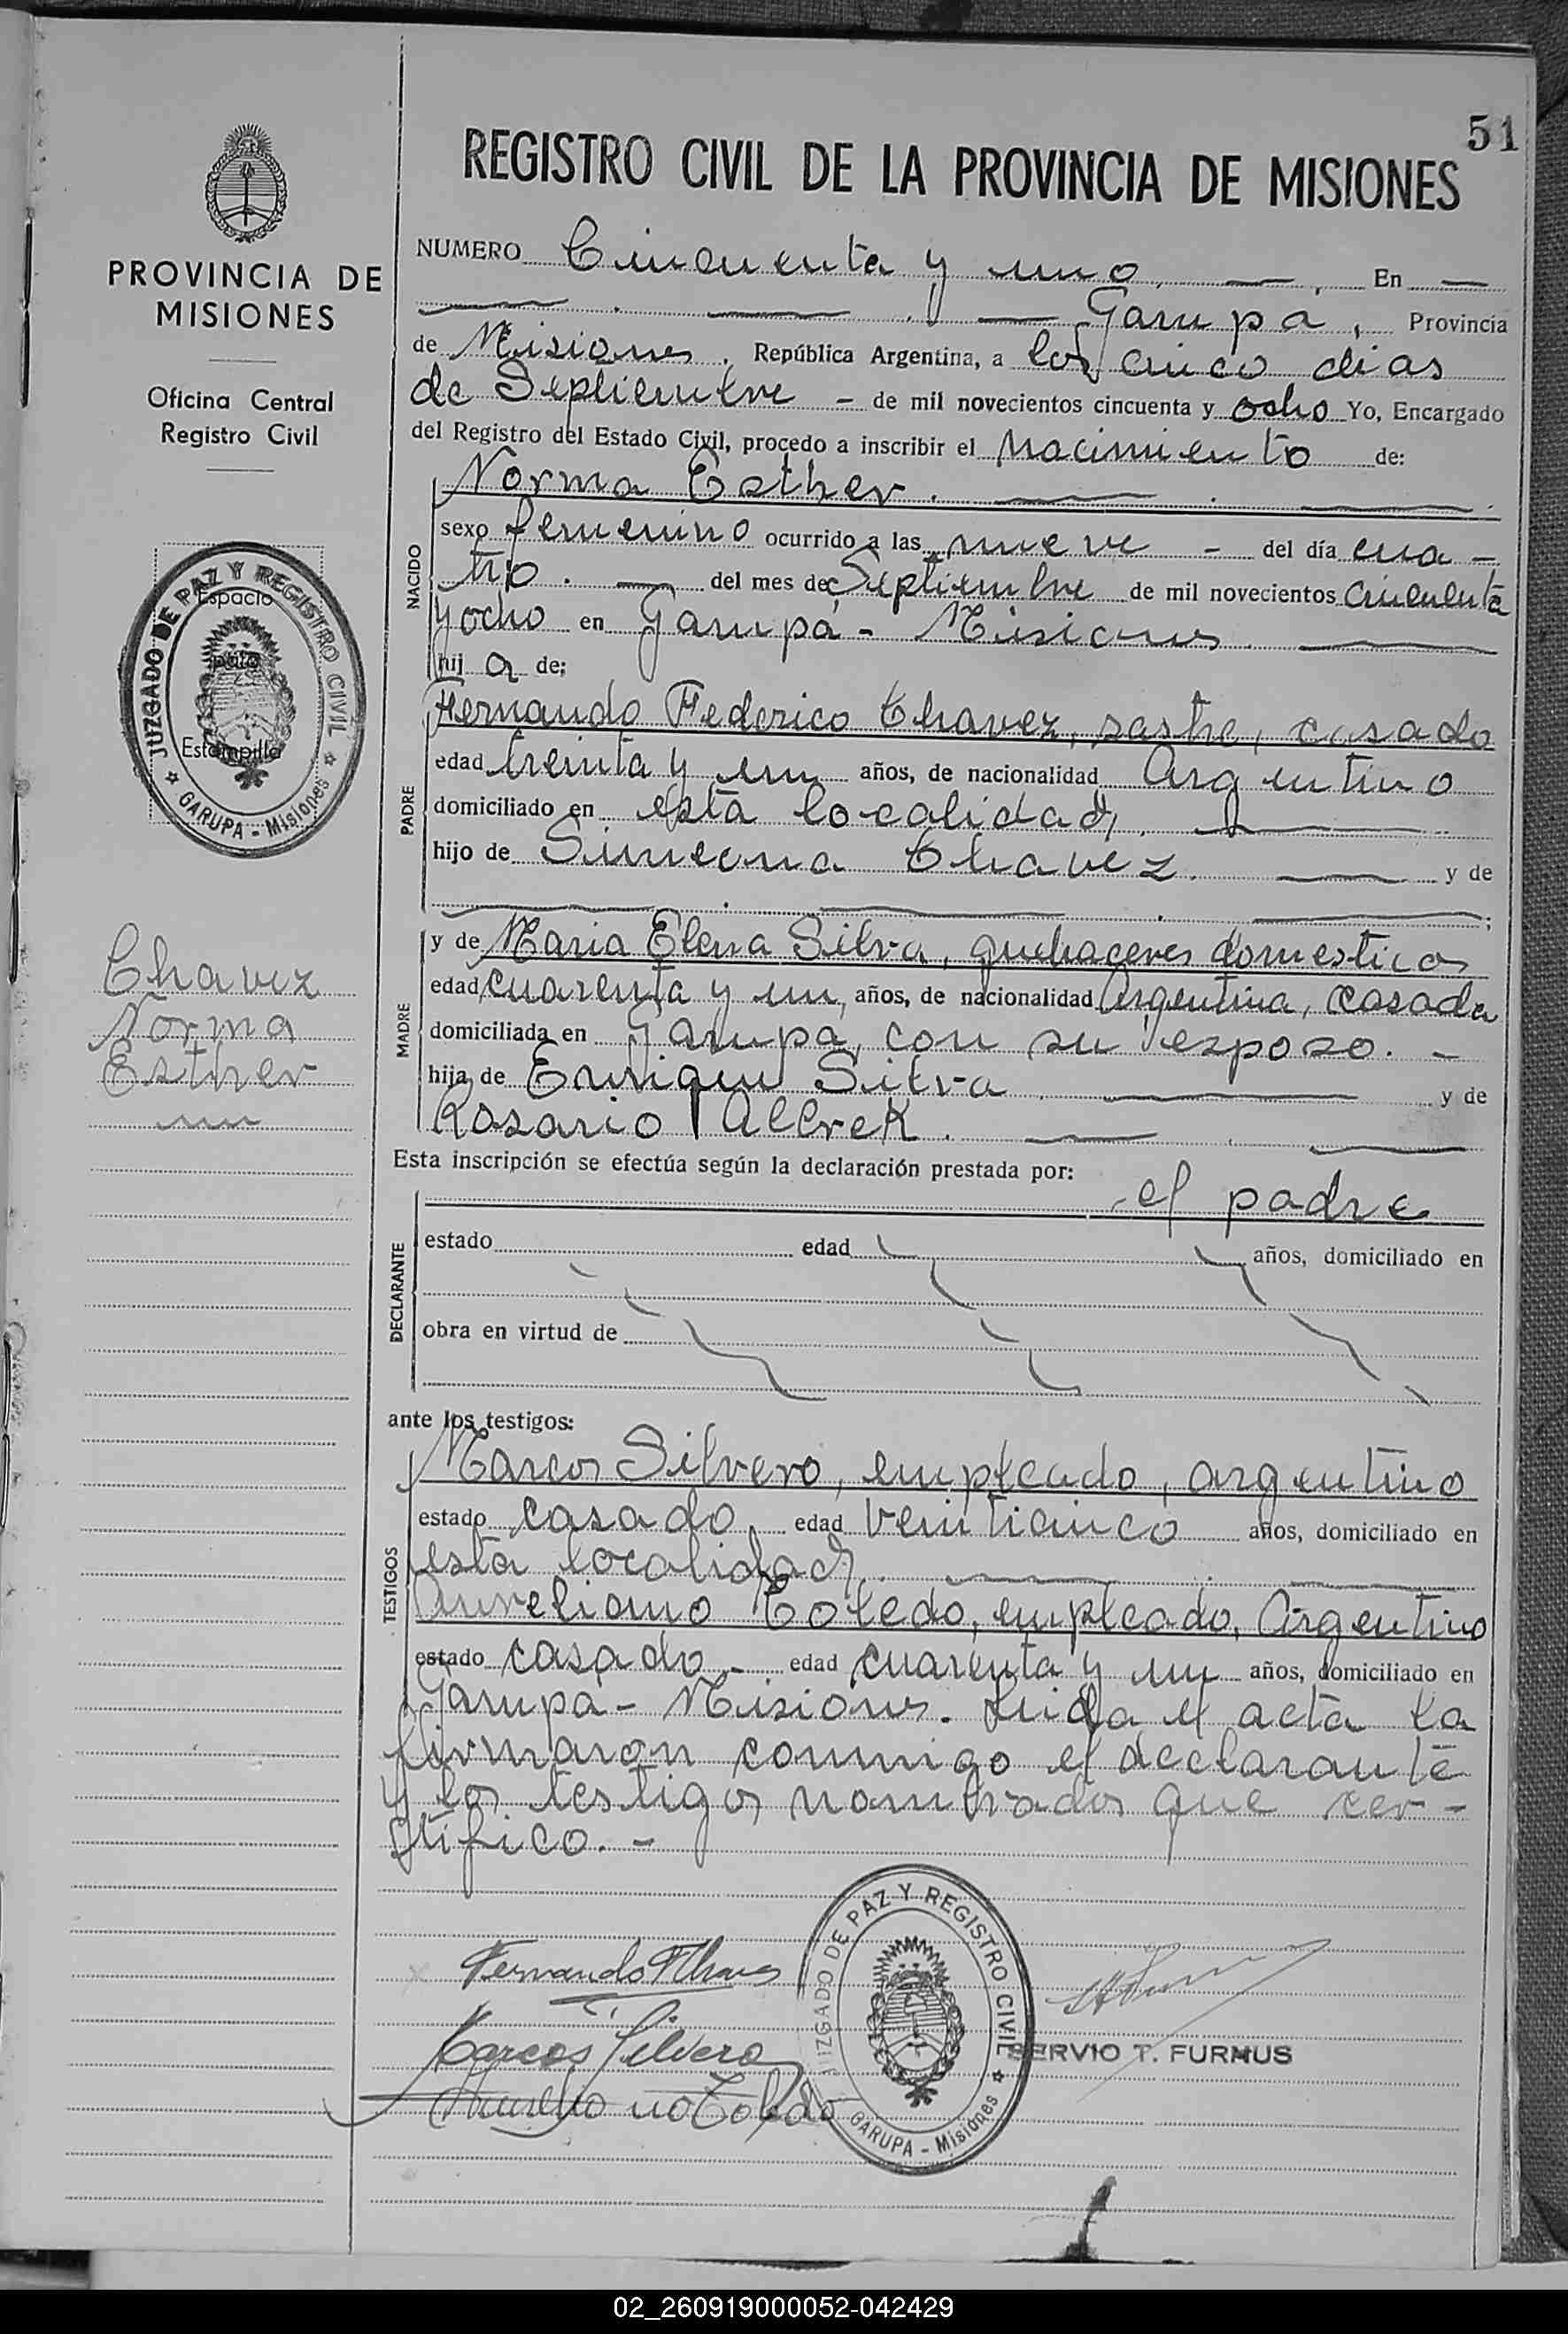 51
REGISTRO CIVIL DE LA PROVINCIA DE MISIONES
PROVINCIA DE
MISIONES
Oficina Central
Registro Civil
JUZGADO DE PAZ Y REGISTRO CIVIL
GARUPA - Misiones
Espacio
para
Estampilla
Chavez
Norma
Esther
NUMERO Cincuenta y uno. En
Garupá, Provincia
de Misiones. República Argentina, a los cinco dias
de Septiembre - de mil novecientos cincuenta y ocho Yo, Encargado
del Registro del Estado Civil, procedo a inscribir el Nacimiento de:
NACIDO
Norma Esther.
sexo femenino ocurrido a las nueve - del día cua-
tro. del mes de Septiembre de mil novecientos cincuenta
y ocho en Garupá - Misiones.
hij a de;
PADRE
Fernando Federico Chavez, sastre, casado
edad treinta y un años, de nacionalidad Argentino
domiciliado en esta localidad.
hijo de Simeona Chavez. y de
MADRE
y de Maria Elena Silva, quehaceres domesticos
edad cuarenta y un, años, de nacionalidad Argentina, casada
domiciliada en Garupá, con su esposo. -
hija de Enrique Silva y de
Rosario
Esta inscripción se efectúa según la declaración prestada por:
el padre
DECLARANTE
estado edad años, domiciliado en
obra en virtud de
ante los testigos:
TESTIGOS
Marcos Silvero, empleado, argentino
estado casado, edad veinticinco años, domiciliado en
esta localidad.
Aureliano Toledo, empleado, Argentino
estado casado - edad cuarenta y un años, domiciliado en
Garupá - Misiones. Leida el acta la
firmaron conmigo el declarante
y los testigos nombrados que cer-
tifico. -
Fernando F Chavez
Marcos Silvero
Aureliano Toledo
JUZGADO DE PAZ Y REGISTRO CIVIL
GARUPA - Misiones
SERVIO T. FURMUS
02_260919000052-042429